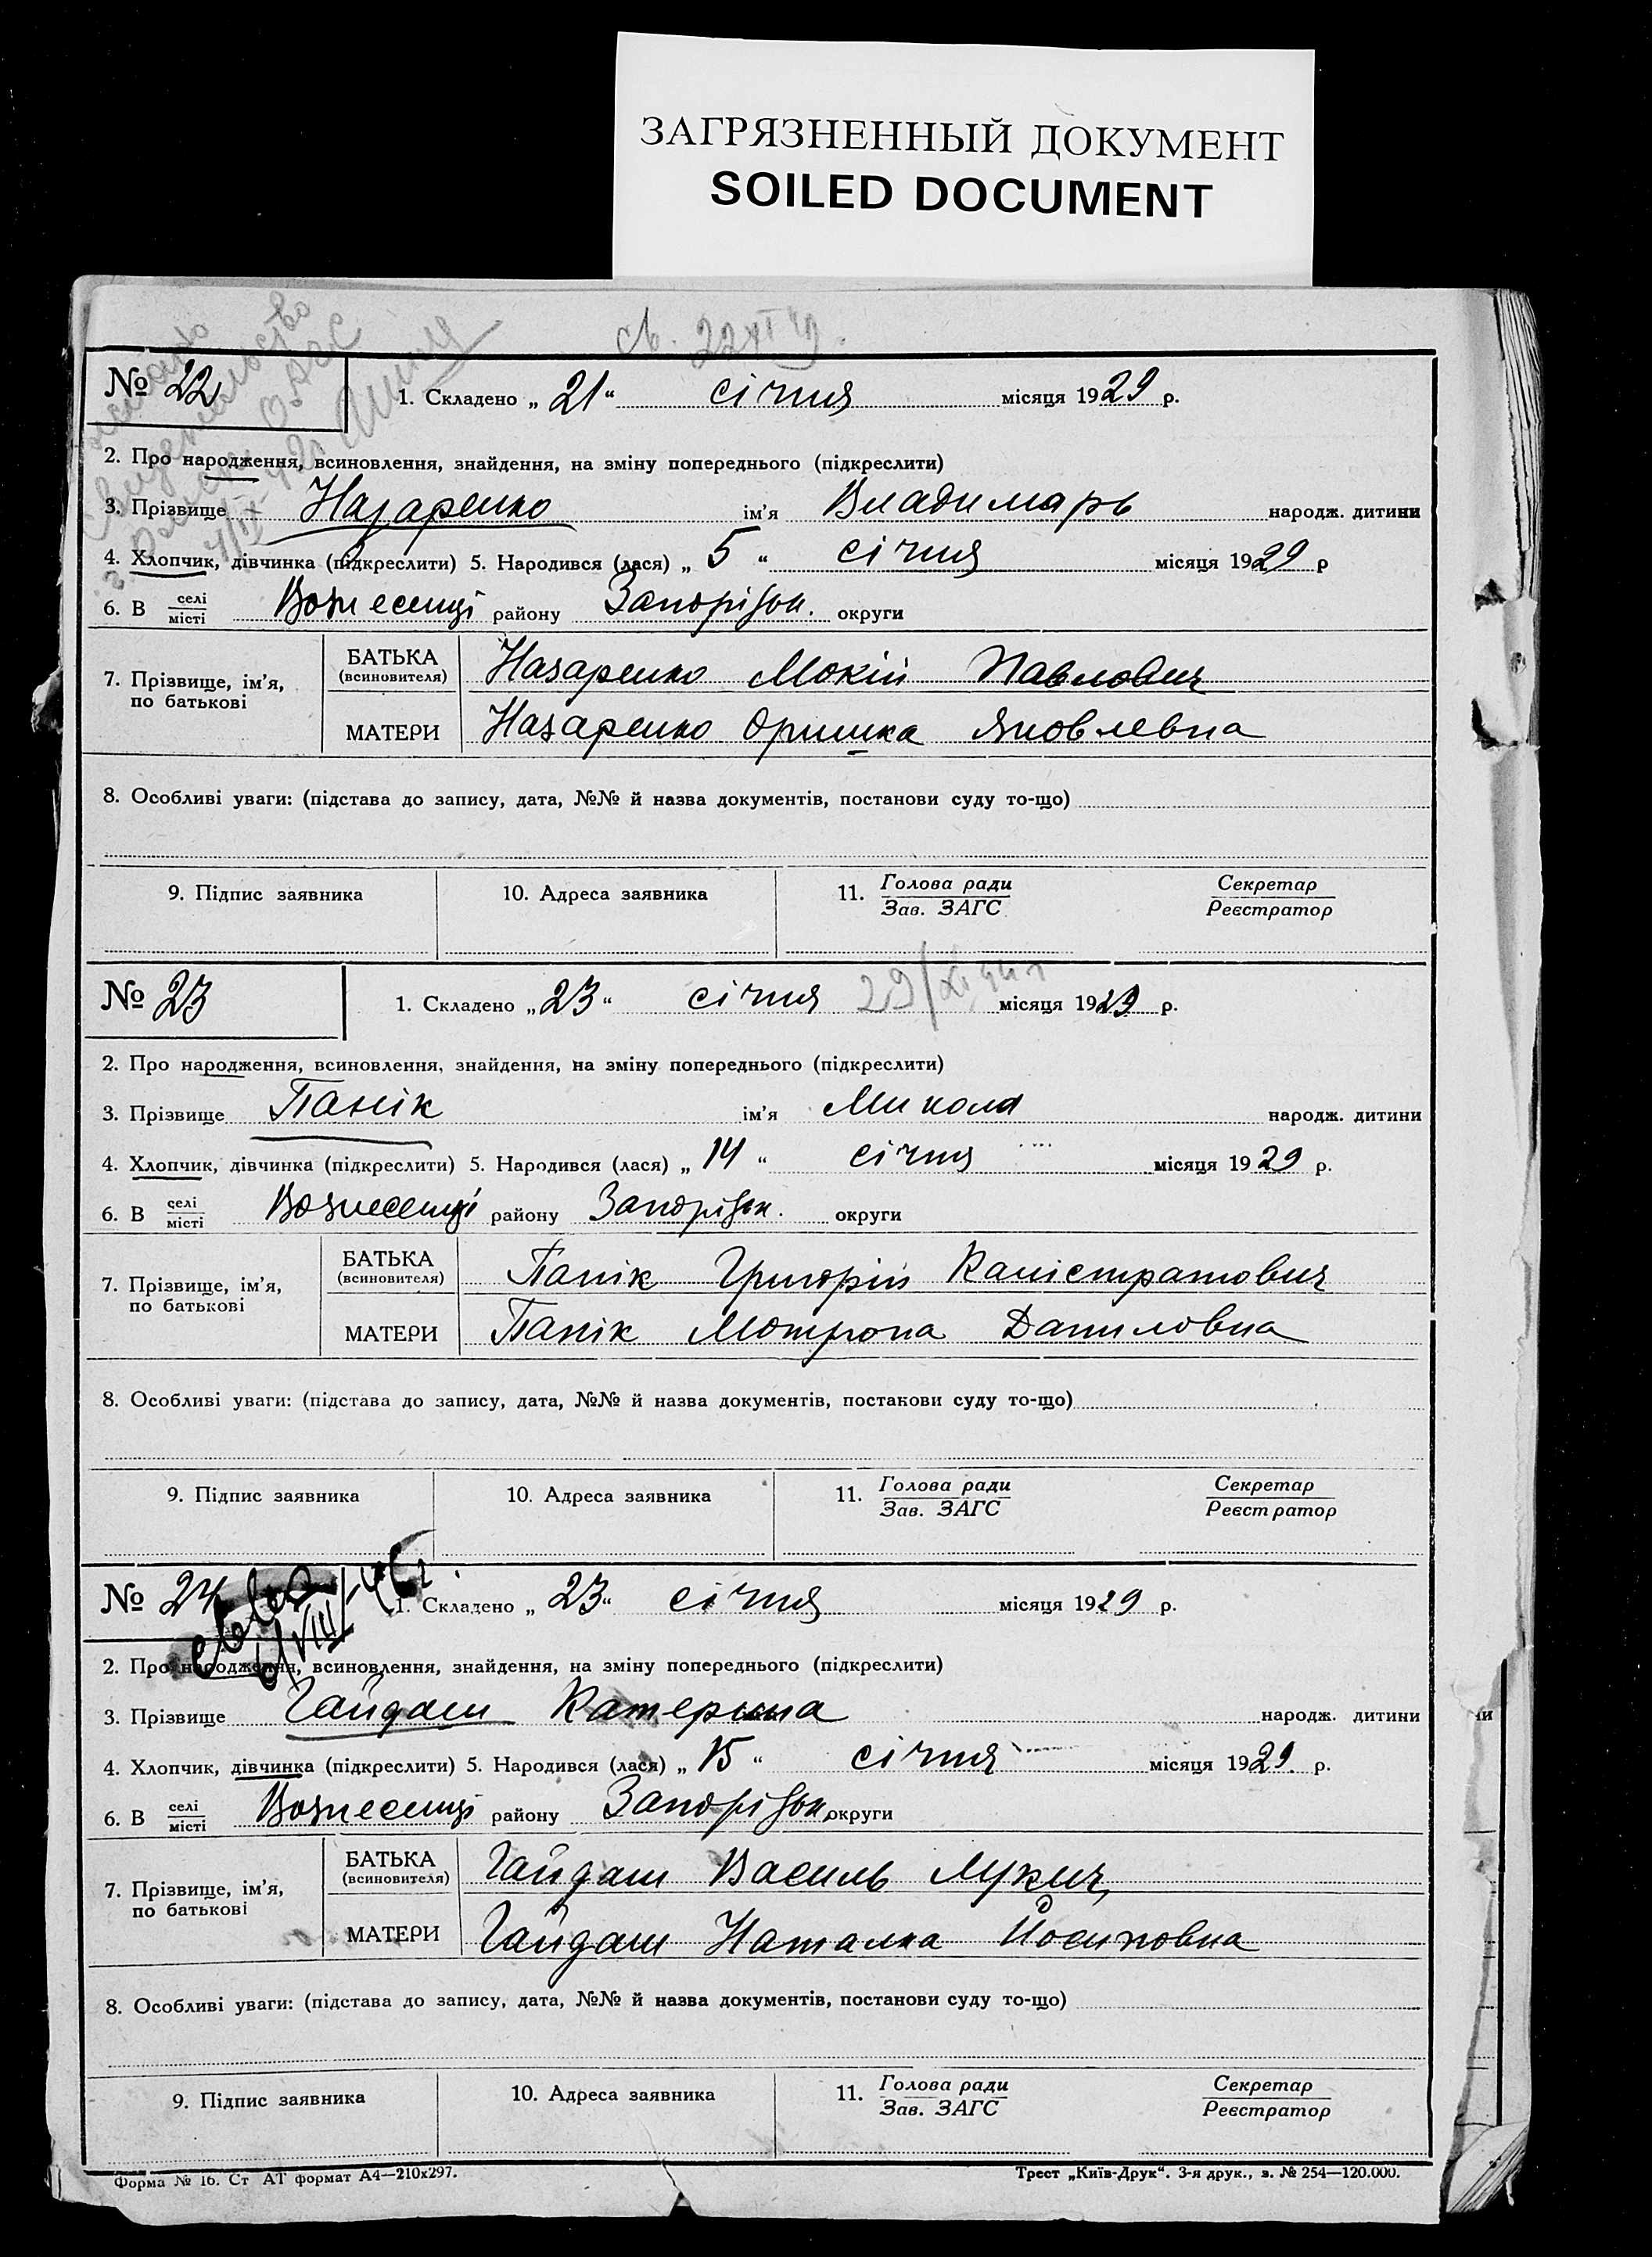 ЗАГРЯЗНЕННЫЙ ДОКУМЕНТ
SOILED DOCUMENT
№ 22 1. Складено „ 21 “ січня місяця 1929 р.
2. Про народження, всиновлення, знайдення, на зміну попереднього (підкреслити)
3. Прізвище Назаренко ім’я Владимарь народж. дитини
4. Хлопчик, дівчинка (підкреслити) 5. Народився (лася) „ 5 “ січня місяця 1929 р
6. В селі/місті Вознесенці району Запорізьк. округи
7. Прізвище, ім’я, по батькові
БАТЬКА (всиновителя) Назаренко Мокій Павлович
МАТЕРИ Назаренко Оришка Яковлевна
8. Особливі уваги: (підстава до запису, дата, №№ й назва документів, постанови суду то-що)
9. Підпис заявника 10. Адреса заявника 11. Голова ради/Зав. ЗАГС Секретар/Реєстратор
№ 23 1. Складено „ 23 “ січня місяця 1929 р.
2. Про народження, всиновлення, знайдення, на зміну попереднього (підкреслити)
3. Прізвище Папік ім’я Микола народж. дитини
4. Хлопчик, дівчинка (підкреслити) 5. Народився (лася) „ 14 “ січня місяця 1929 р.
6. В селі/місті Вознесенці району Запорізьк. округи
7. Прізвище, ім’я, по батькові
БАТЬКА (всиновителя) Папік Григорій Калістратович
МАТЕРИ Папік Мотрона Даниловна
8. Особливі уваги: (підстава до запису, дата, №№ й назва документів, постакови суду то-що)
9. Підпис заявника 10. Адреса заявника 11. Голова ради/Зав. ЗАГС Секретар/Реєстратор
№ 24 1. Складено „ 23 “ січня місяця 1929 р.
2. Про народження, всиновлення, знайдення, на зміну попереднього (підкреслити)
3. Прізвище Гайдаш Катерына народж. дитини
4. Хлопчик, дівчинка (підкреслити) 5. Народився (лася) „ 15 “ січня місяця 1929. р.
6. В селі/місті Вознесенці району Запорізьк. округи
7. Прізвище, ім’я, по батькові
БАТЬКА (всиновителя) Гайдаш Василь Лукич
МАТЕРИ Гайдаш Наталка Йосиповна
8. Особливі уваги: (підстава до запису, дата, №№ й назва документів, постанови суду то-що)
9. Підпис заявника 10. Адреса заявника 11. Голова ради/Зав. ЗАГС Секретар/Реєстратор
Форма № 16. Ст АТ формат А4—210х297. Трест „Київ-Друк“. 3-я друк., з. № 254—120.000.